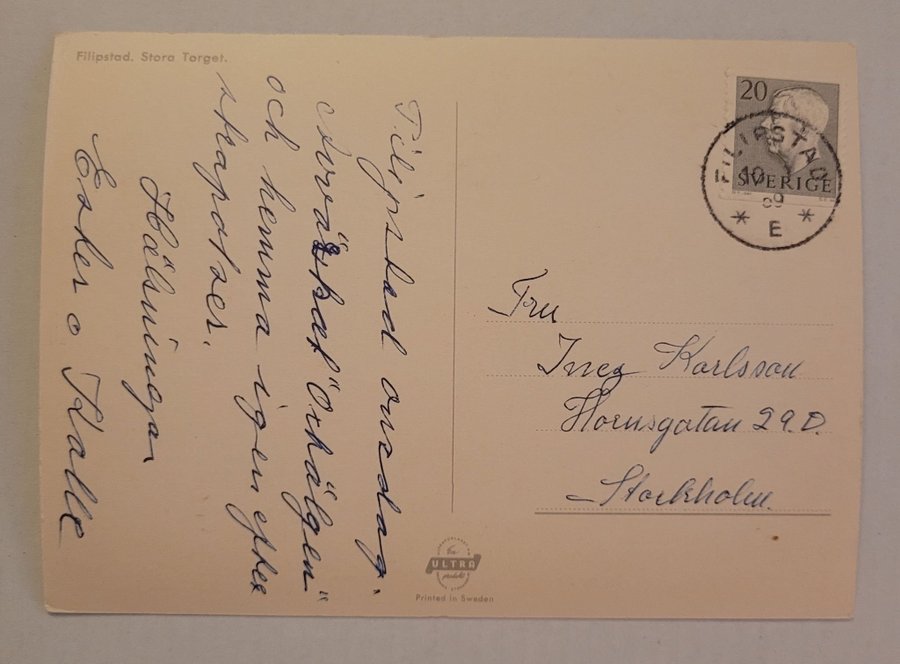 Filipstad. Stora Torget.
Filipstad onsdag.
Avvärkat "Oxhälgen"
och hemma igen efter
strapatser.
Hälsningar
Ester o Kalle
20
SVERIGE
FILIPSTAD
10
E
Fru
Inez Karlsson
Hornsgatan 29.D.
Stockholm.
En
ULTRA
produkt
Printed in Sweden